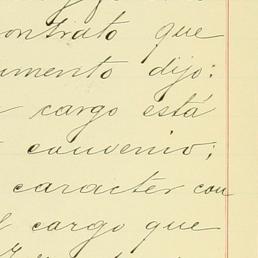 ontrato que
umento dijo:
cargo está
convenio;
caracter con
l cargo que